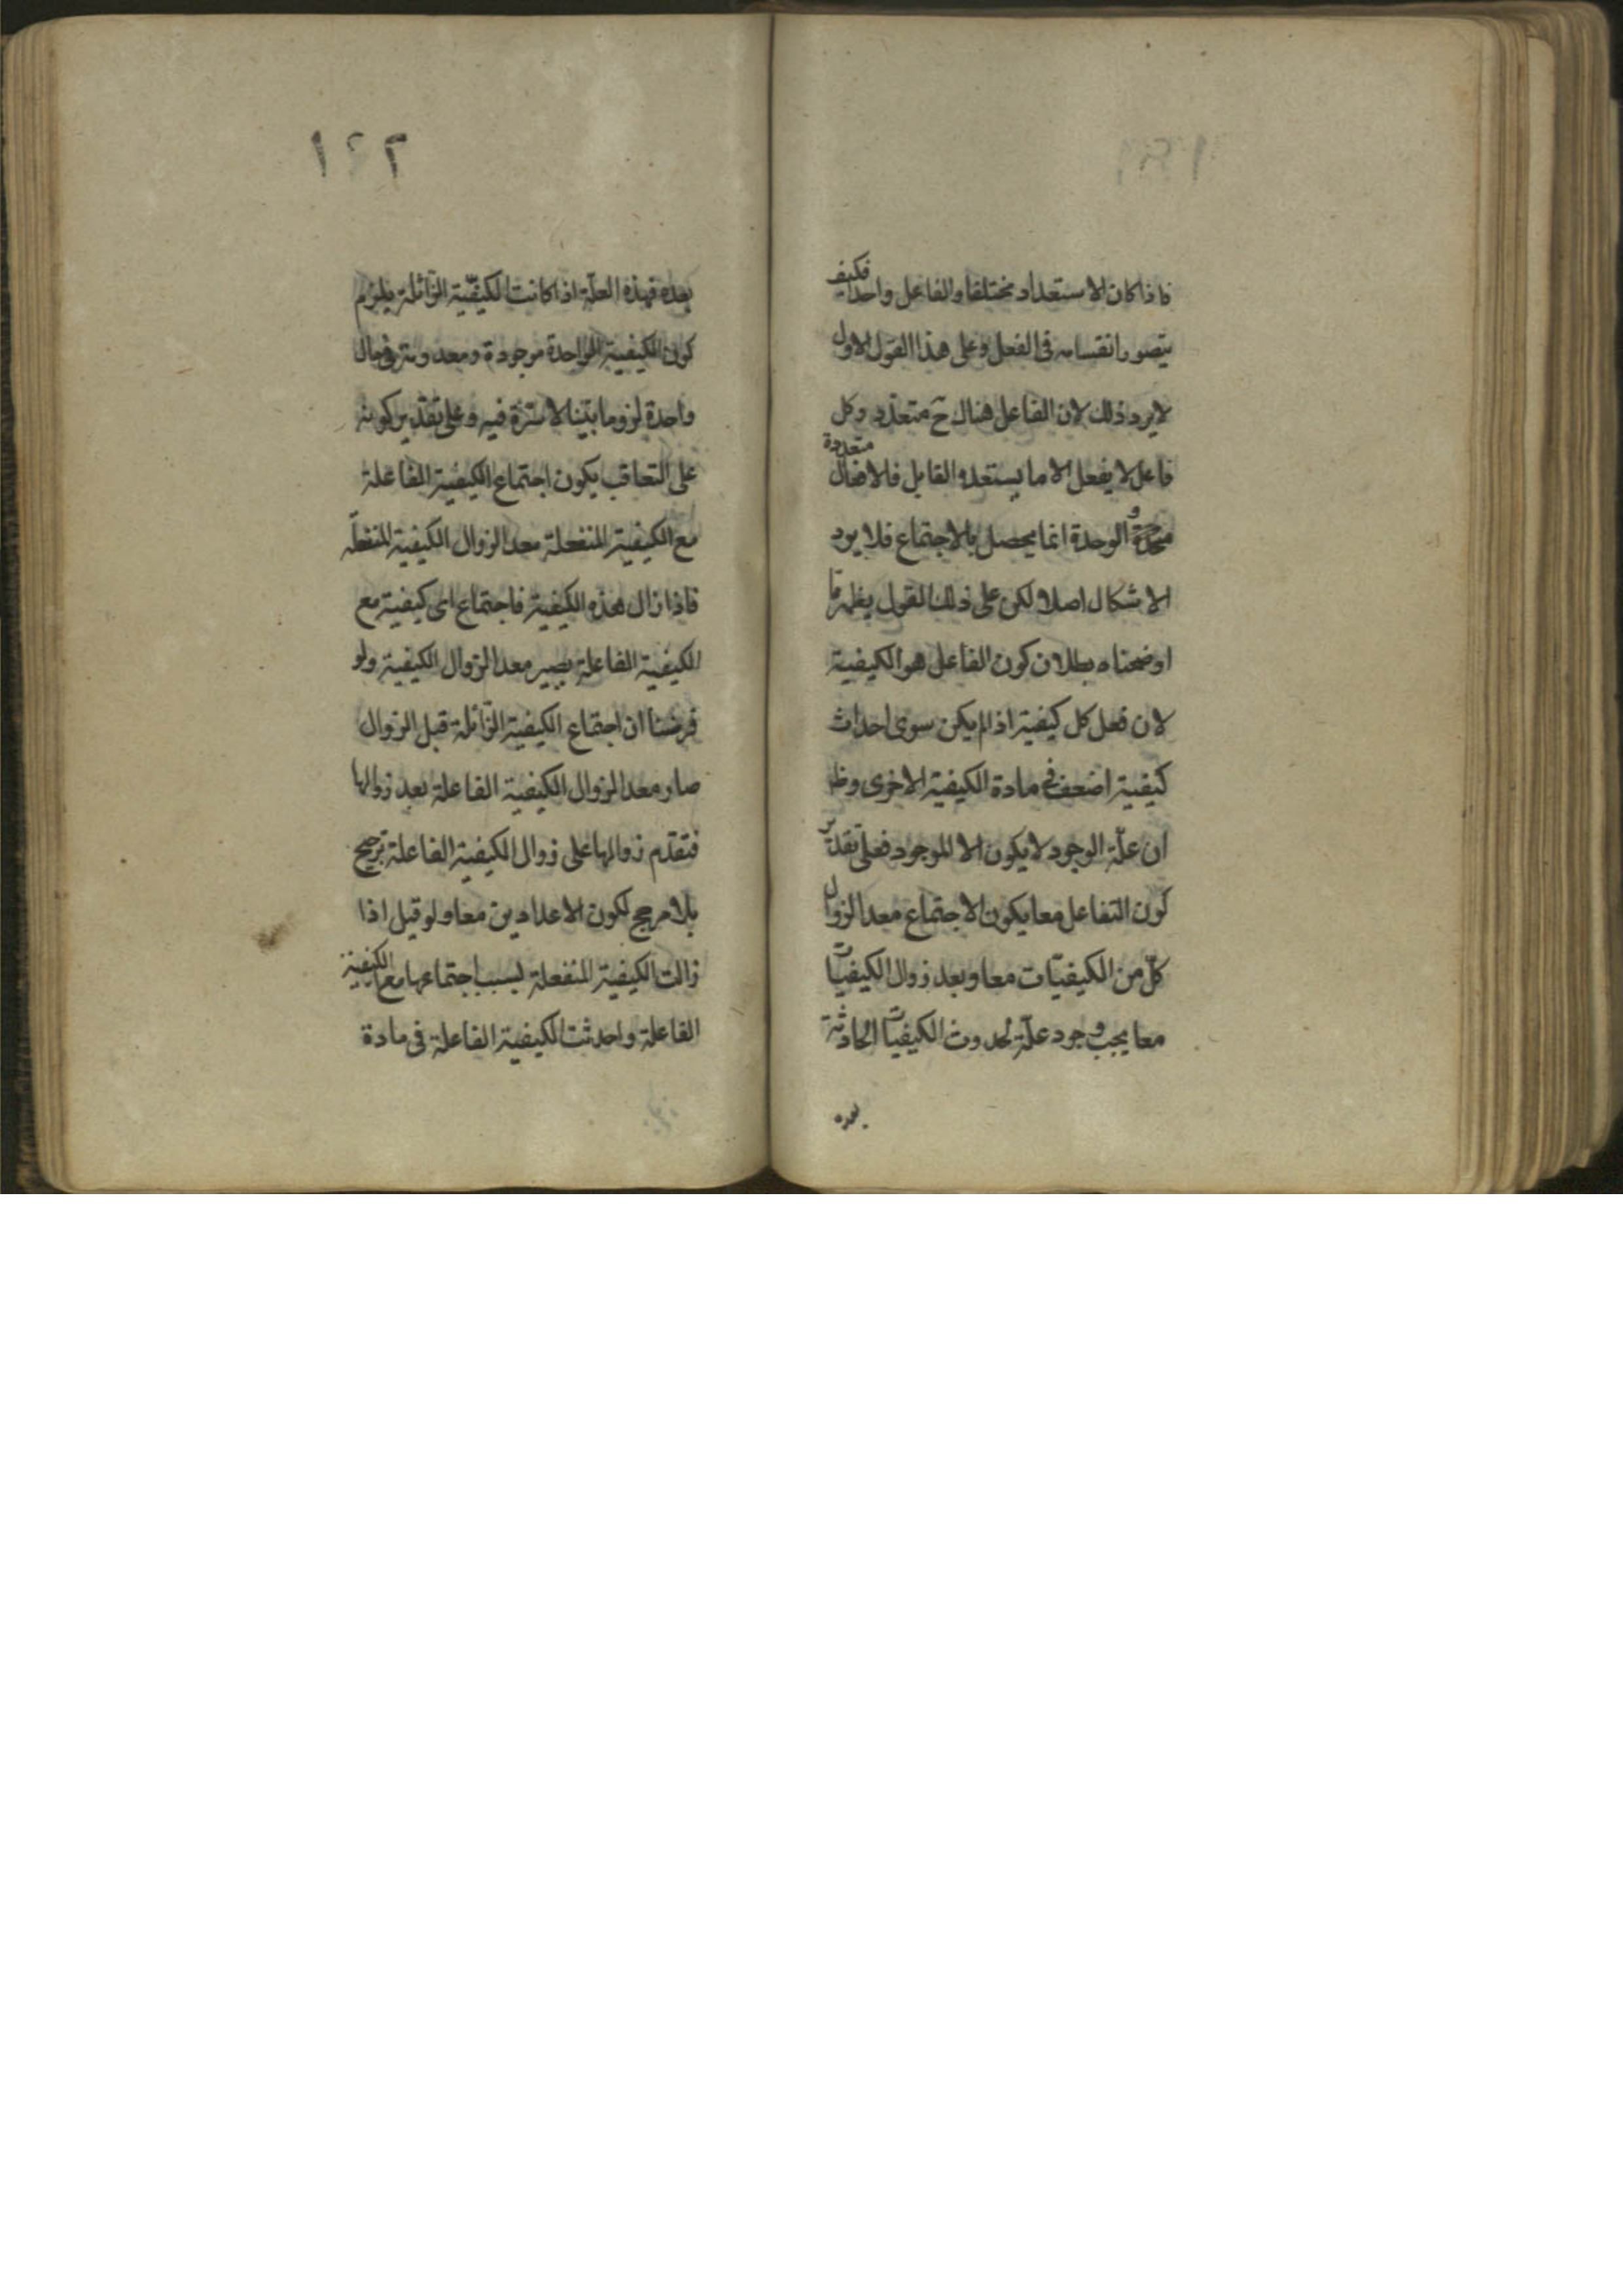 فاذا كان الاستعداد مختلفا والفاعل واحدا فكيف
يتصور انقسامه فى الفعل وعلى هذا القول الاول
لا يرد ذلك لان الفاعل هناك ح متعدد وكل
فاعل لا يفعل الا ما يستعده القابل فالافعال متعددة
والوحدة انما يحصل بالاجتماع فلا يرد
الاشكال اصلا لكن على ذلك القول يظهر مما
اوضحناه بطلان كون الفاعل هو الكيفية
لان فعل كل كيفية اذا لم يكن سوى احداث
كيفية اضعف فى مادة الكيفية الاخرى وظ
ان علّة الوجود لا يكون الا الموجود فعلى تقدير
كون التفاعل معا يكون الاجتماع معدا لزوال
كلّ من الكيفيّات معا وبعد زوال الكيفيات
معا يجب وجود علّة لحدوث الكيفيات الحادثة
بعده
١٤٢
بعده فهذه العلّة اذا كانت الكيفيّة الزّائلة يلزم
كون الكيفية الواحدة موجودة ومعدومة فى حال
واحدة لزوما بيّنا لا سترة فيه وعلى تقدير كونه
على التعاقب يكون اجتماع الكيفية الفاعلة
مع الكيفية المنفعلة معدا لزوال الكيفية المنفعلة
فاذا زال هذه الكيفية فاجتماع اى كيفية مع
الكيفية الفاعلة يصير معدا لزوال الكيفية ولو
فرضنا ان اجتماع الكيفية الزّائلة قبل الزوال
صار معدا لزوال الكيفية الفاعلة بعد زوالها
فتقدّم زوالها على زوال الكيفية الفاعلة ترجيح
بلا مرجح لكون الاعدادين معا ولو قيل اذا
زالت الكيفية المنفعلة بسبب اجتماعها مع الكيفية
الفاعلة واحدثت الكيفية الفاعلة فى مادة